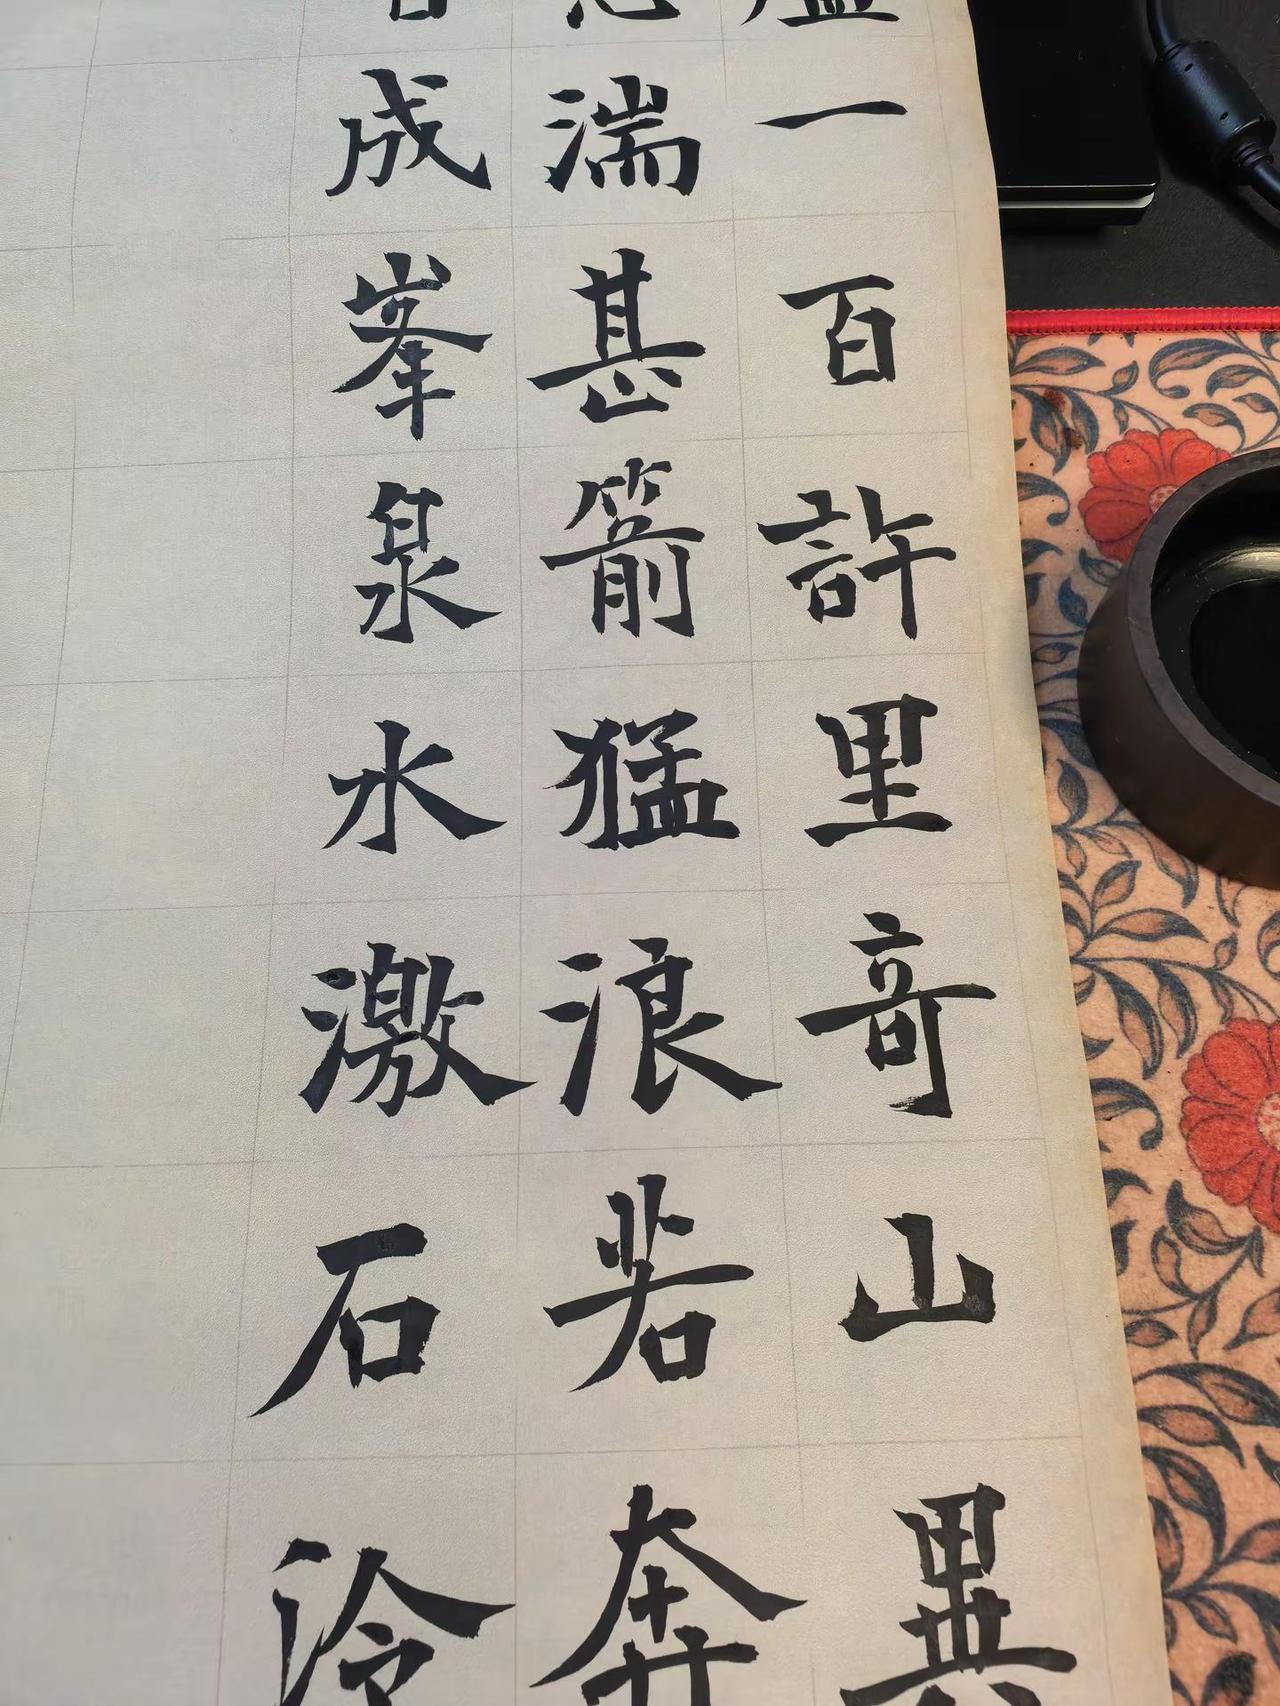 一百許里奇山異
湍甚箭猛浪若奔
成峯泉水激石泠